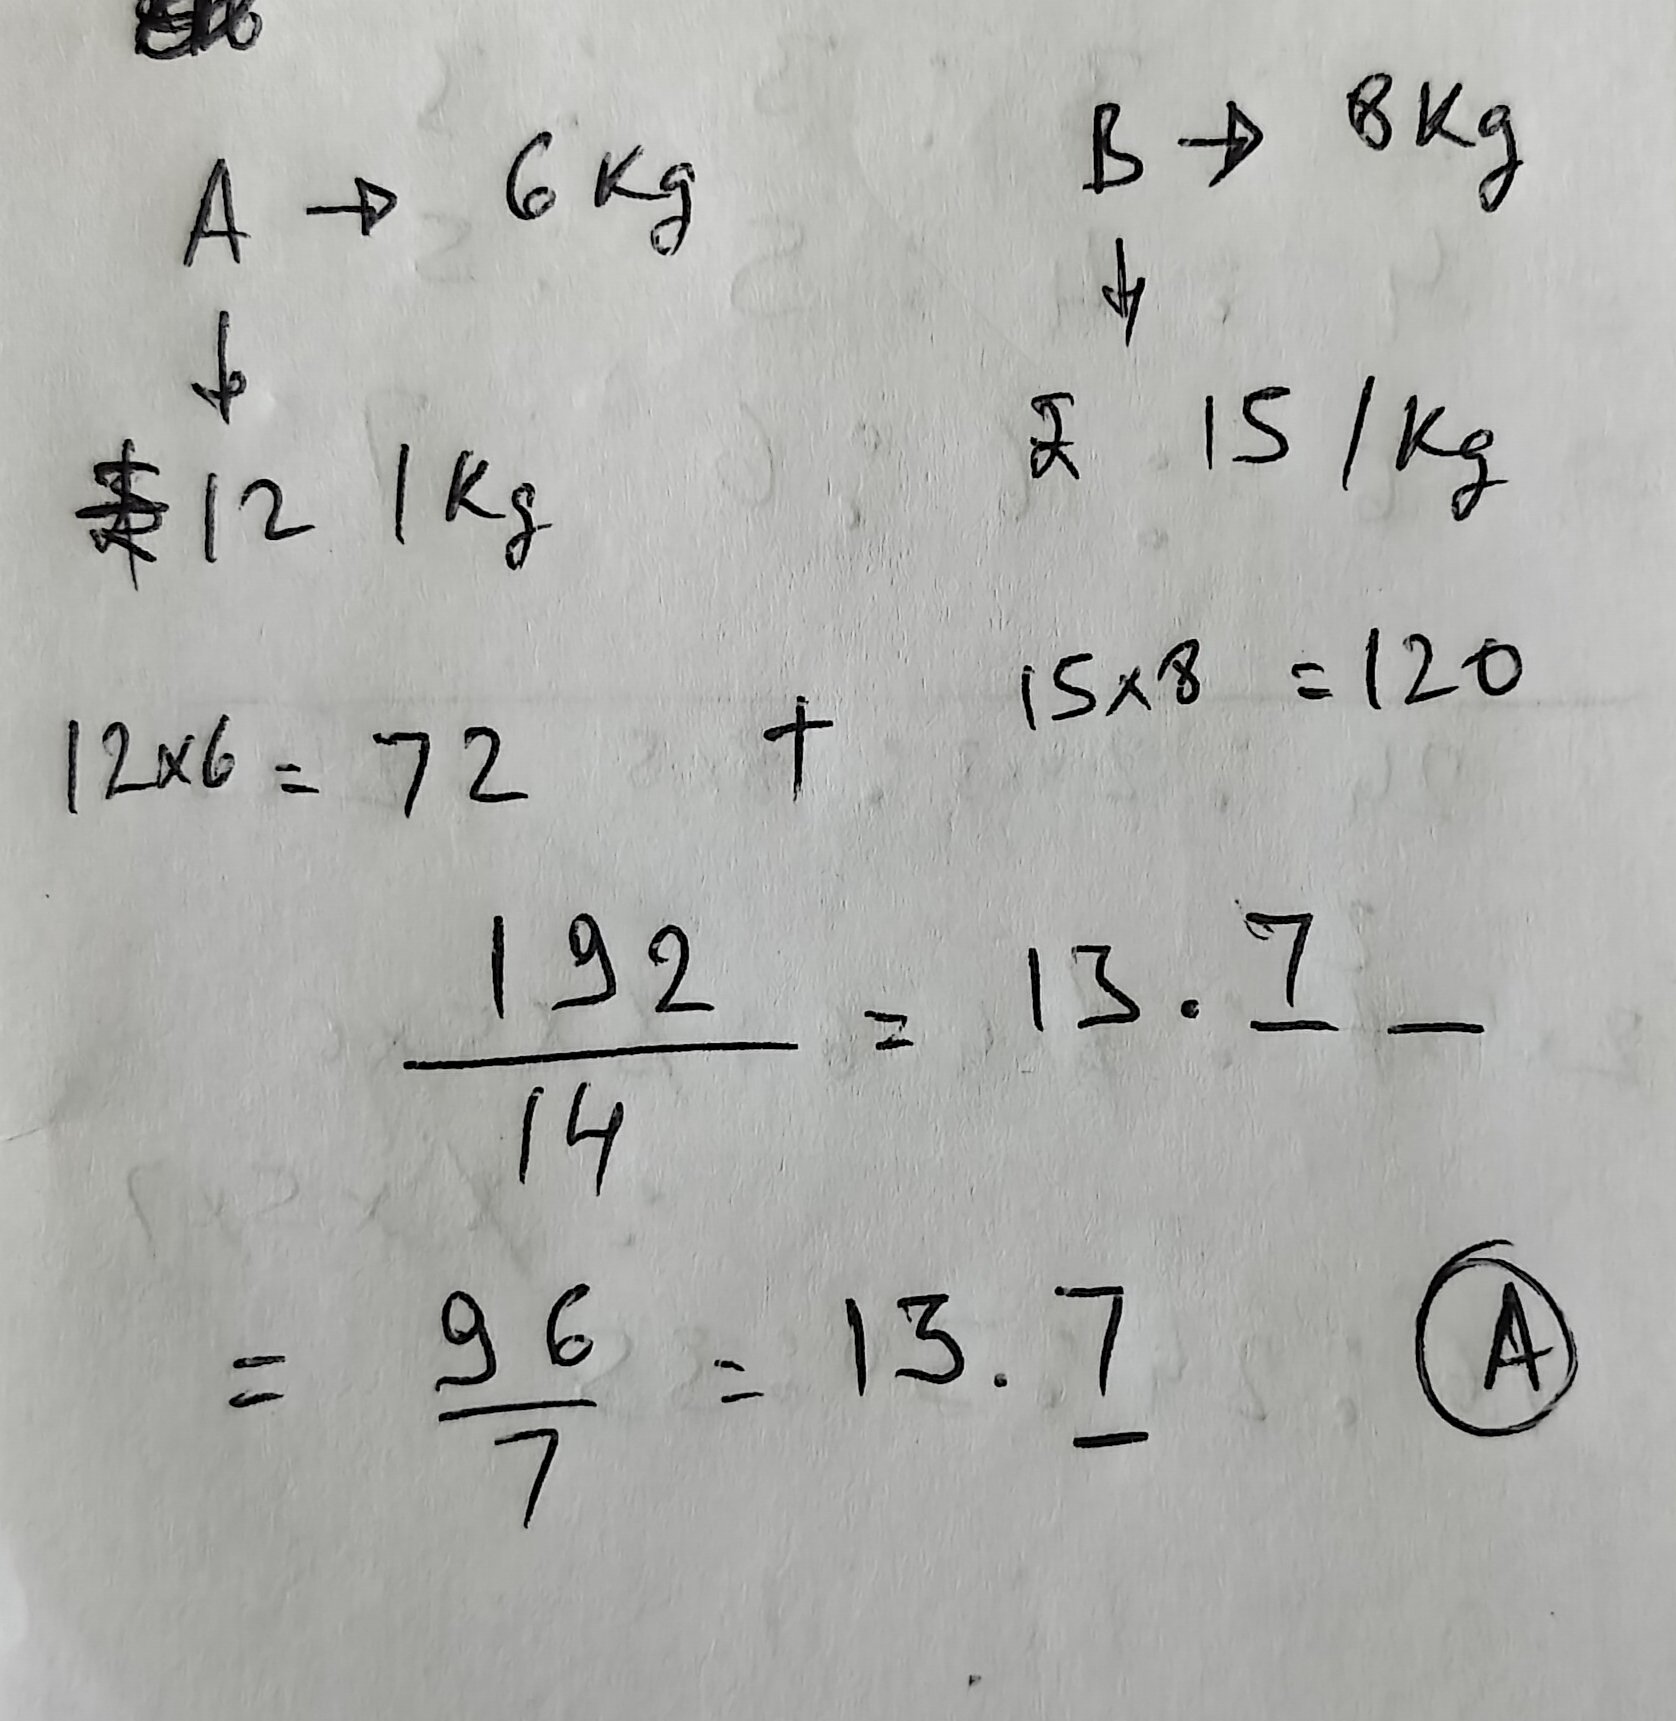 A → 6 Kg B → 8 Kg
↓ ↓
12 / Kg ₹ 15 / Kg
12x6 = 72 + 15x8 = 120
192
14
= 13.7 _
= 96
7
= 13.7 A